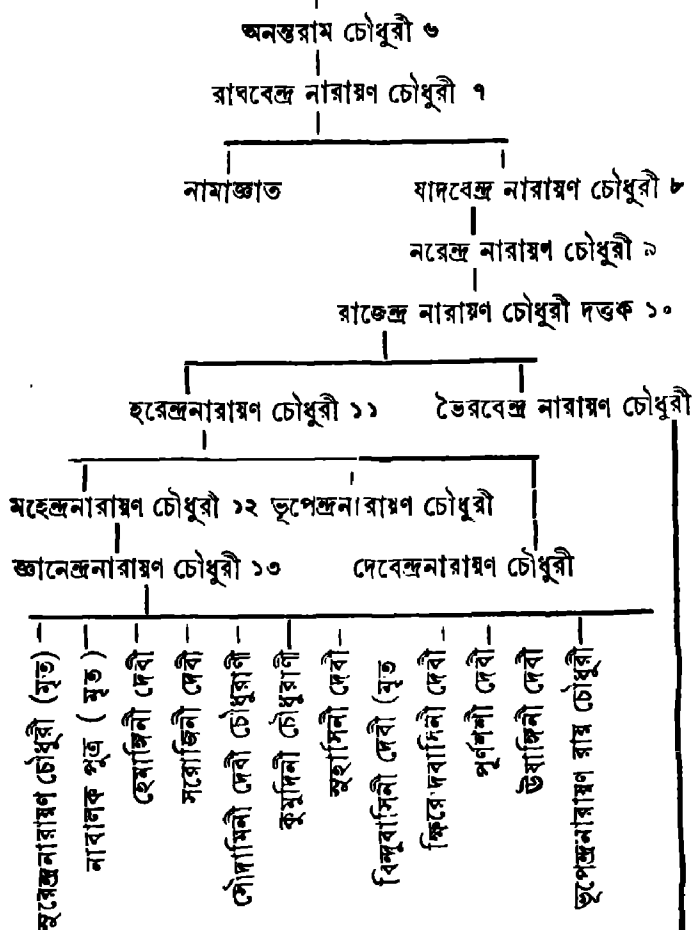 অনন্তরাম চৌধুরী ৬
রাঘবেন্দ্র নারায়ণ চৌধুরী ৭
নামাজ্ঞাত
যাদবেন্দ্র নারায়ণ চৌধুরী ৮
নরেন্দ্র নারায়ণ চৌধুরী ৯
রাজেন্দ্র নারায়ণ চৌধুরী দত্তক ১০
হরেন্দ্রনারায়ণ চৌধুরী ১১
ভৈরবেন্দ্র নারায়ণ চৌধুরী
মহেন্দ্রনারায়ণ চৌধুরী ১২
ভূপেন্দ্রনারায়ণ চৌধুরী
জ্ঞানেন্দ্রনারায়ণ চৌধুরী ১৩
দেবেন্দ্রনারায়ণ চৌধুরী
সুরেন্দ্রনারায়ণ চৌধুরী (মৃত)
নাবালক পুত্র (মৃত)
হেমাঙ্গিনী দেবী
সরোজিনী দেবী
সৌদামিনী দেবী চৌধুরাণী
কুমুদিনী চৌধুরাণী
সুহাসিনী দেবী
বিন্দুবাসিনী দেবী (মৃত
ক্ষিরোদবাসিনী দেবী
পূর্ণশশী দেবী
ঊষাঙ্গিনী দেবী
ভূপেন্দ্রনারায়ণ রায় চৌধুরী